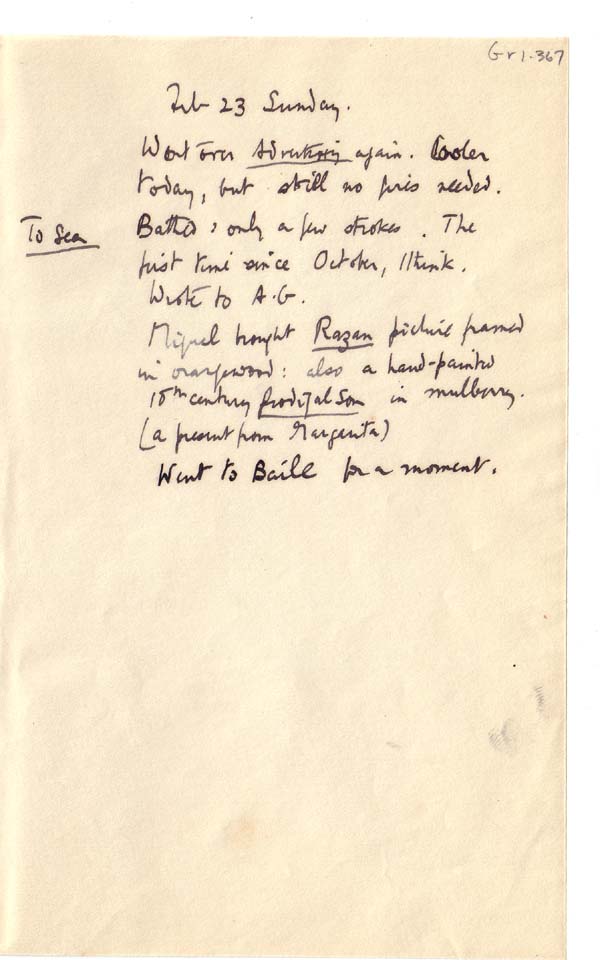 Gr1.367
Feb 23 Sunday.
Went over Advertising again. Cooler
today, but still no fires needed.
To Sea
Bathed: only a few strokes. The
first time since October, I think.
Wrote to A.G.
Miguel brought Razan picture framed
in orangewood: also a hand-painted
18th century Prodigal Son in mulberry.
(a present from Margarita)
Went to Baile for a moment.